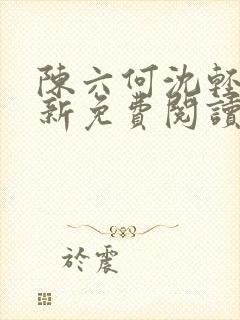 陳六何沈輕
新免費閱讀
於震